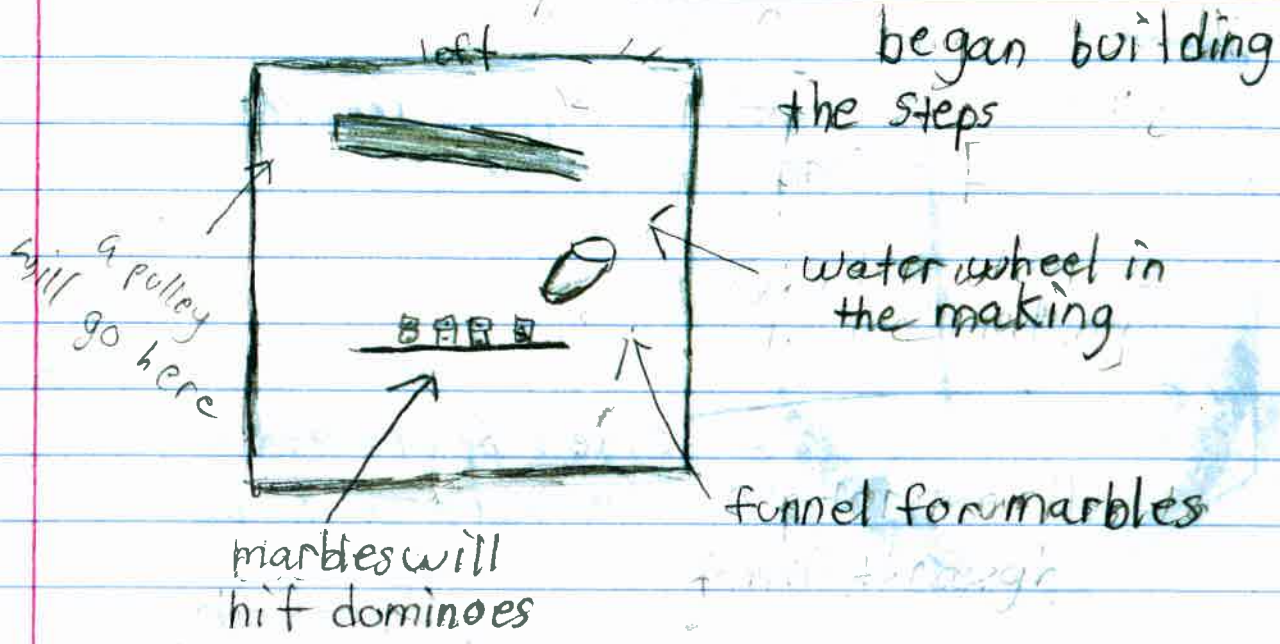 left
began building
the steps
a pulley
will go here
water wheel in
the making
funnel for marbles
marbles will
hit dominoes